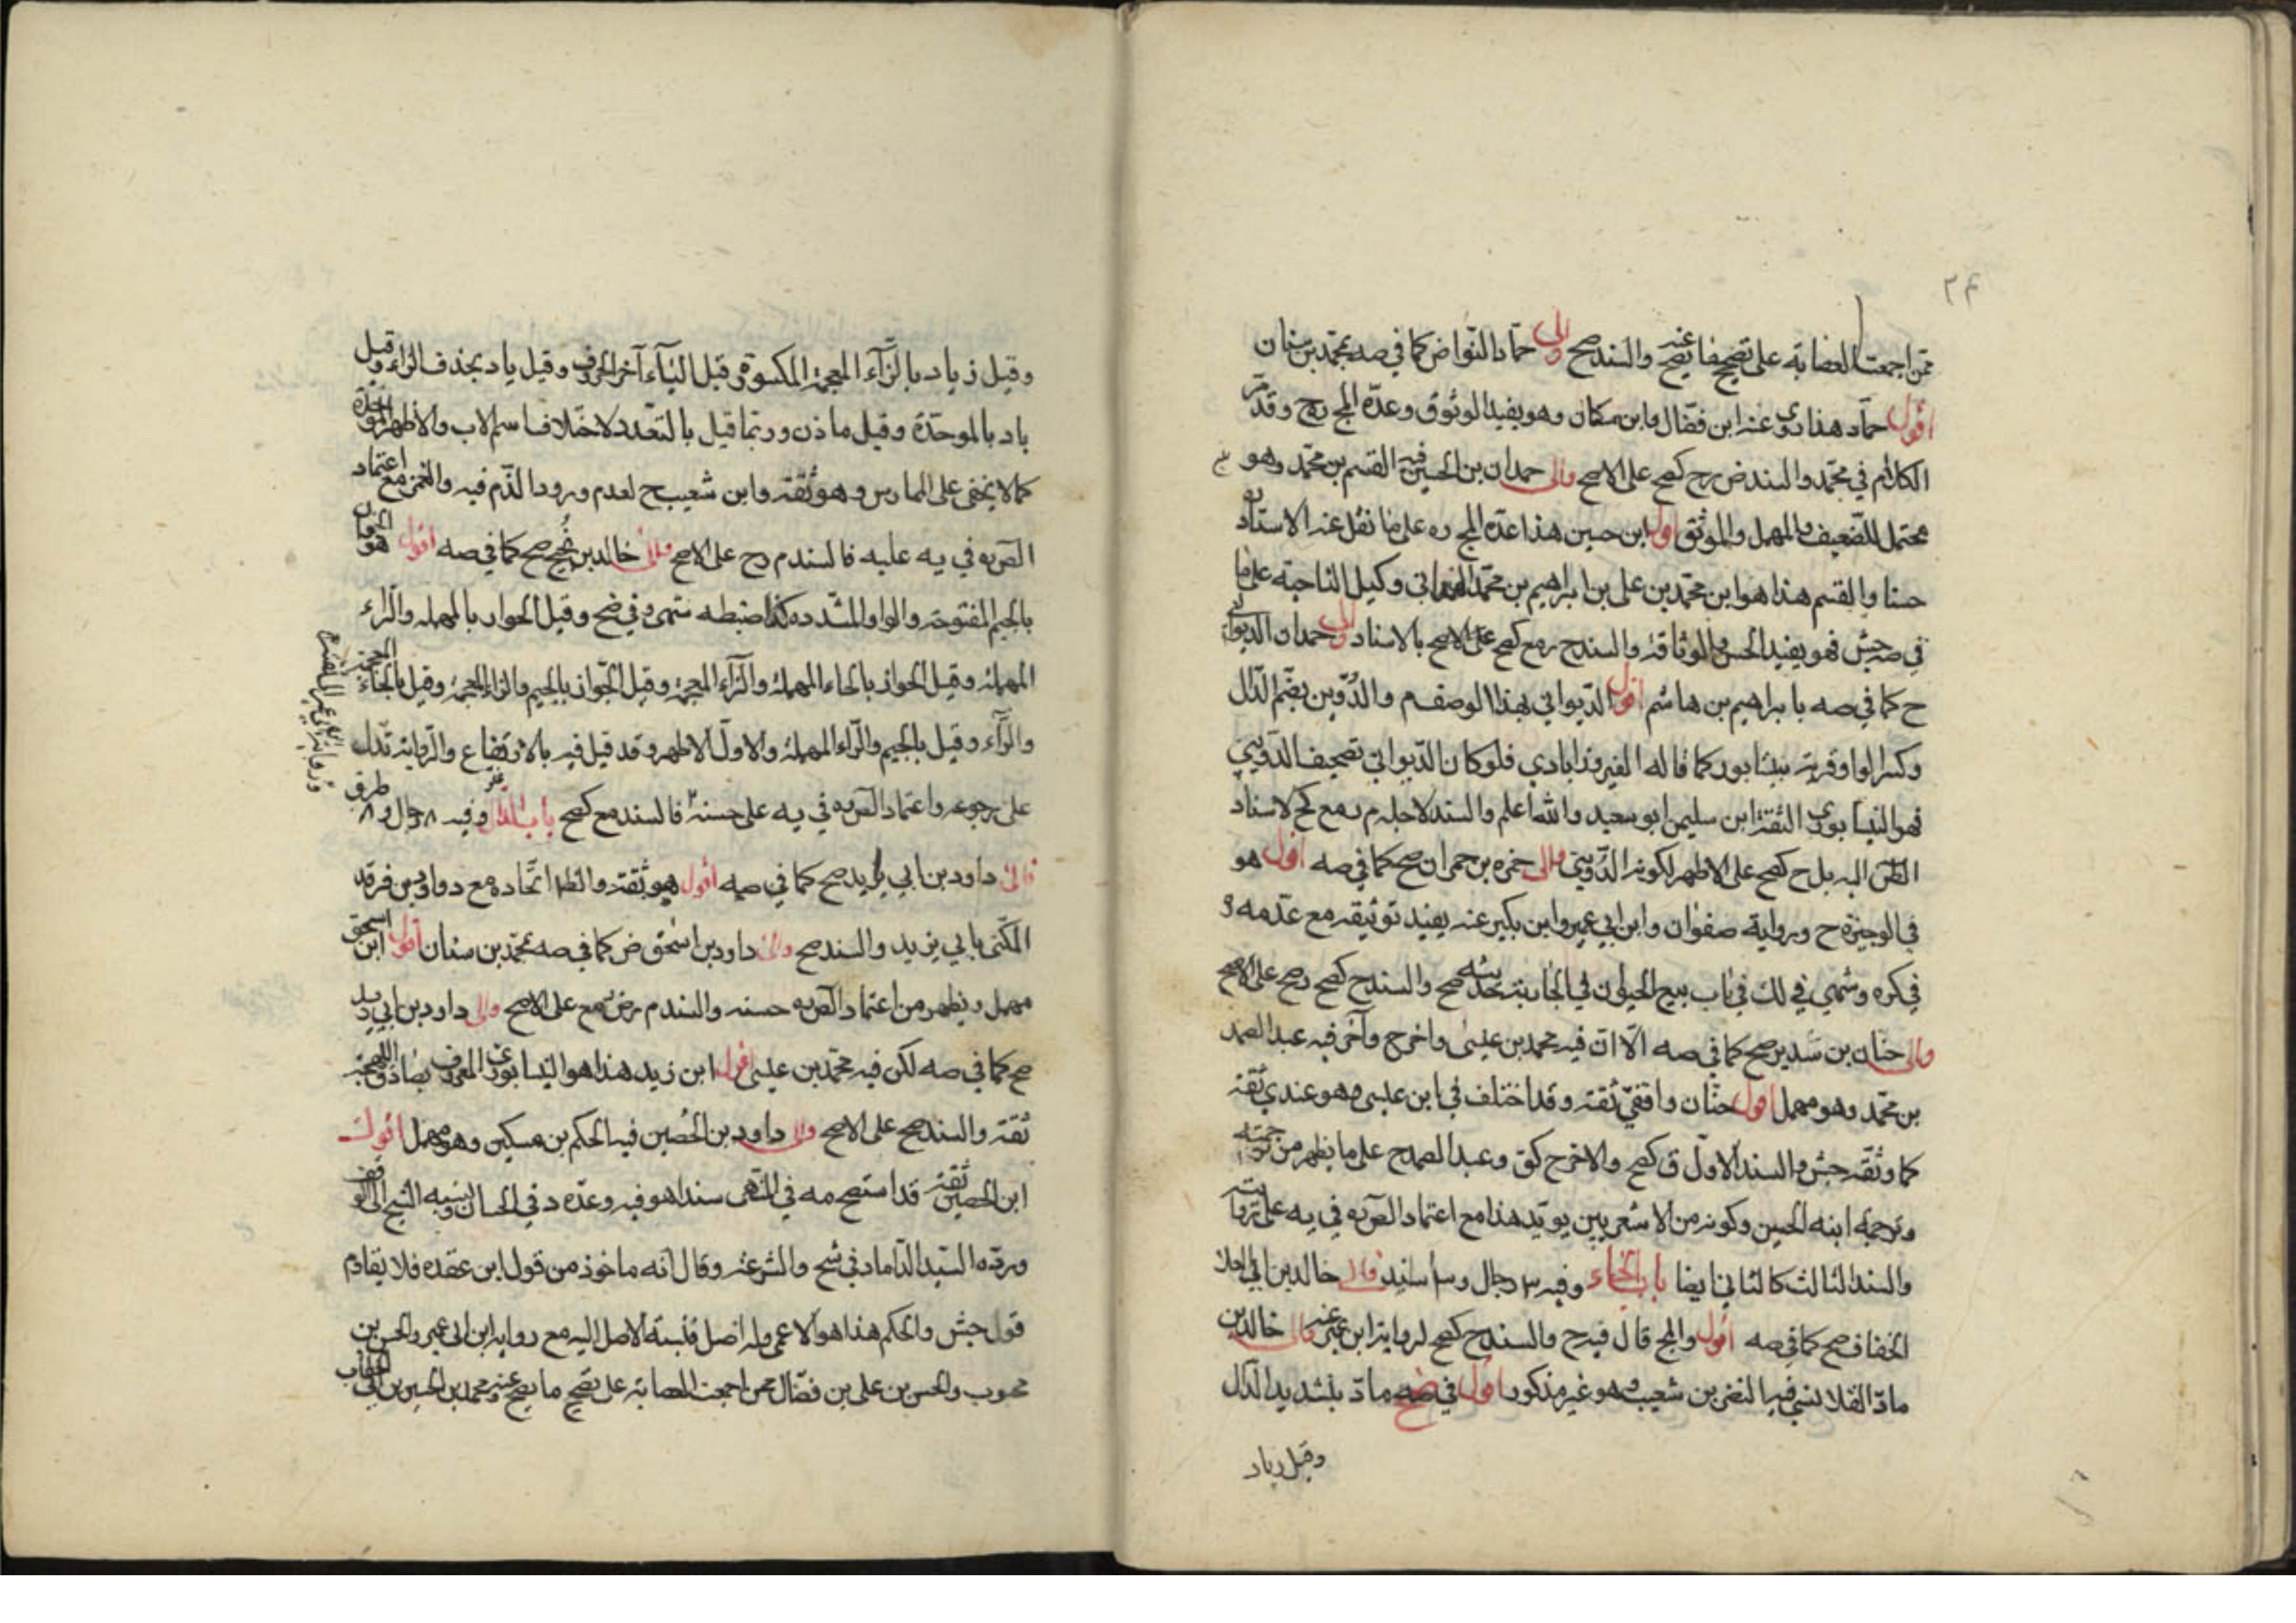 ٢۴
ممن اجمعت العصابة على تصحيح ما يصح عنه والسند صح والى حماد النوا ض كما في صه بمحمد بن سنان
اقول حماد هذا روى عنه ابن فضال وابن مسكان وهو يفيد الوثوق وعده المج رح وقد مر
الكلام في محمد والسند ض رح كصح على الاصح والى حمدان بن الحسين فيه القسم بن محمد وهو
محتمل للضعيف والمهمل والموثق اقول ابن حسين هذا عده المج ره على ما نقل عنه الاستاد
حسنا والقسم هذا هو ابن محمد بن علي بن ابراهيم بن محمد الهمداني وكيل الناحية على ما
في صه جش فهو يفيد الحسن والوثاقة والسند ح مع كصح على الاصح بالاسناد والى حمدان الديواني
ح كما في صه بابراهيم بن هاشم اقول الديواني بهذا الوصف م والدوين بضم الدال
وكسر الواو قرية بنيسابور كما قاله الفيروزابادي فلو كان الديواني تصحيف الدويني
فهو النيسابوري الثقة ابن سليمن ابو سعيد والله اعلم والسند لاجله م مع كح لاسناد
الص اليه بل ح كصح على الاظهر لكونه الدويني والى حمزه بن حمران صح كما في صه اقول هو
في الوجيزة ح ورواية صفوان وابن ابي عمير وابن بكير عنه يفيد توثيقه مع عد مه و
في كره وشهي في لك في باب بيع الحيوان في الجارية حديثه صح والسند ح كصح رصح على الاصح
والى حنان بن سدير صح كما في صه الا ان فيه محمد بن عيسى واخر ح وآخر فيه عبد الصمد
بن محمد وهو مهمل اقول حنان واقفي ثقة وقد اختلف في ابن عيسى وهو عندي ثقة
كما وثقه جش والسند الاول ق كصح والاخر ح كق وعبد الصمد ح على ما يظهر من ترجمته
وترجمة ابنه الحسين وكونه من الاشعريين يؤيد هذا مع اعتماد الص به في يه على رواياته
والسند الثالث كالثاني ايضا باب الخاء وفيه ٣ رجال و٣ اسانيد والى خالد بن ابي العلا
الخفاف صح كما في صه اقول والمج قال فيه ح والسند ح كصح لرواية ابن عمير عنه والى خالد بن
ماد القلانسي فيه النضر بن شعيب وهو غير مذكور اقول في ضح ماد بتشديد الدال
وقيل زياد
وقيل زياد بالزآء المعجمة المكسورة قبل اليآء آخر الحروف وقيل ياد بحذف الزاء وقيل
باد بالموحدة وقيل ماذن وربما قيل بالتعدد لاختلاف اسم الاب والاظهر الوحدة
كما لا يخفى على الممارس وهو ثقة وابن شعيب ح لعدم ورود الذم فيه والغمز مع اعتماد
الص به في يه عليه فالسند م رح على الاصح والى خالد بن نجيح صح كما في صه اقول هو الجوان
بالجيم المفتوحة والواو المشدده كذا ضبطه شهى ره في ضح وقيل الحوار بالمهمله والراء
المهملة وقيل الحواز بالحاء المهملة والزآء المعجمة وقيل الجواز بالجيم والزاء المعجمة وقيل بالخاء المعجمة
والزآء وقيل بالجيم والراء المهملة والاول الاظهر وقد قيل فيه بالارتفاع والرواية تدل
على رجوعه واعتماد الص به في يه على حسنة فالسند مع كصح باب الدال وفيه ٨ رجال و٨ طرق
والى داود بن ابي يزيد صح كما في صه اقول هو ثقة والظا اتحاده مع داود بن فرقد
المكنى بابي يزيد والسند صح والى داود بن اسحق ض كما في صه بمحمد بن سنان اقول ابن اسحق
مهمل ويظهر من اعتماد الص به حسنه والسند م رض مع على الاصح والى داود بن ابي زيد
صح كما في صه لكن فيه محمد بن عيسى اقول ابن زيد هذا هو النيسابوري المعروف بصادق اللهجة
ثقة والسند صح على الاصح والى داود بن الحصين فيه الحكم بن مسكين وهو مهمل اقول
ابن الحصين ثقة قد استصح مه في التهى سندا هو فيه وعده د في الحسان ونسبه الشيخ الى الوقف
ورده السيد الداماد في شح والشر عنه وقال انه ماخوذ من قول ابن عقده فلا يقاوم
قول جش والحكم هذا هو الاعمى وله اصل فنسبة الاصل اليه مع رواية ابن ابي عمير والحسن بن
محبوب والحسن بن علي بن فضال ممن اجمعت العصابة على تصحيح ما يصح عنه ومحمد بن الحسين بن ابي الخطاب